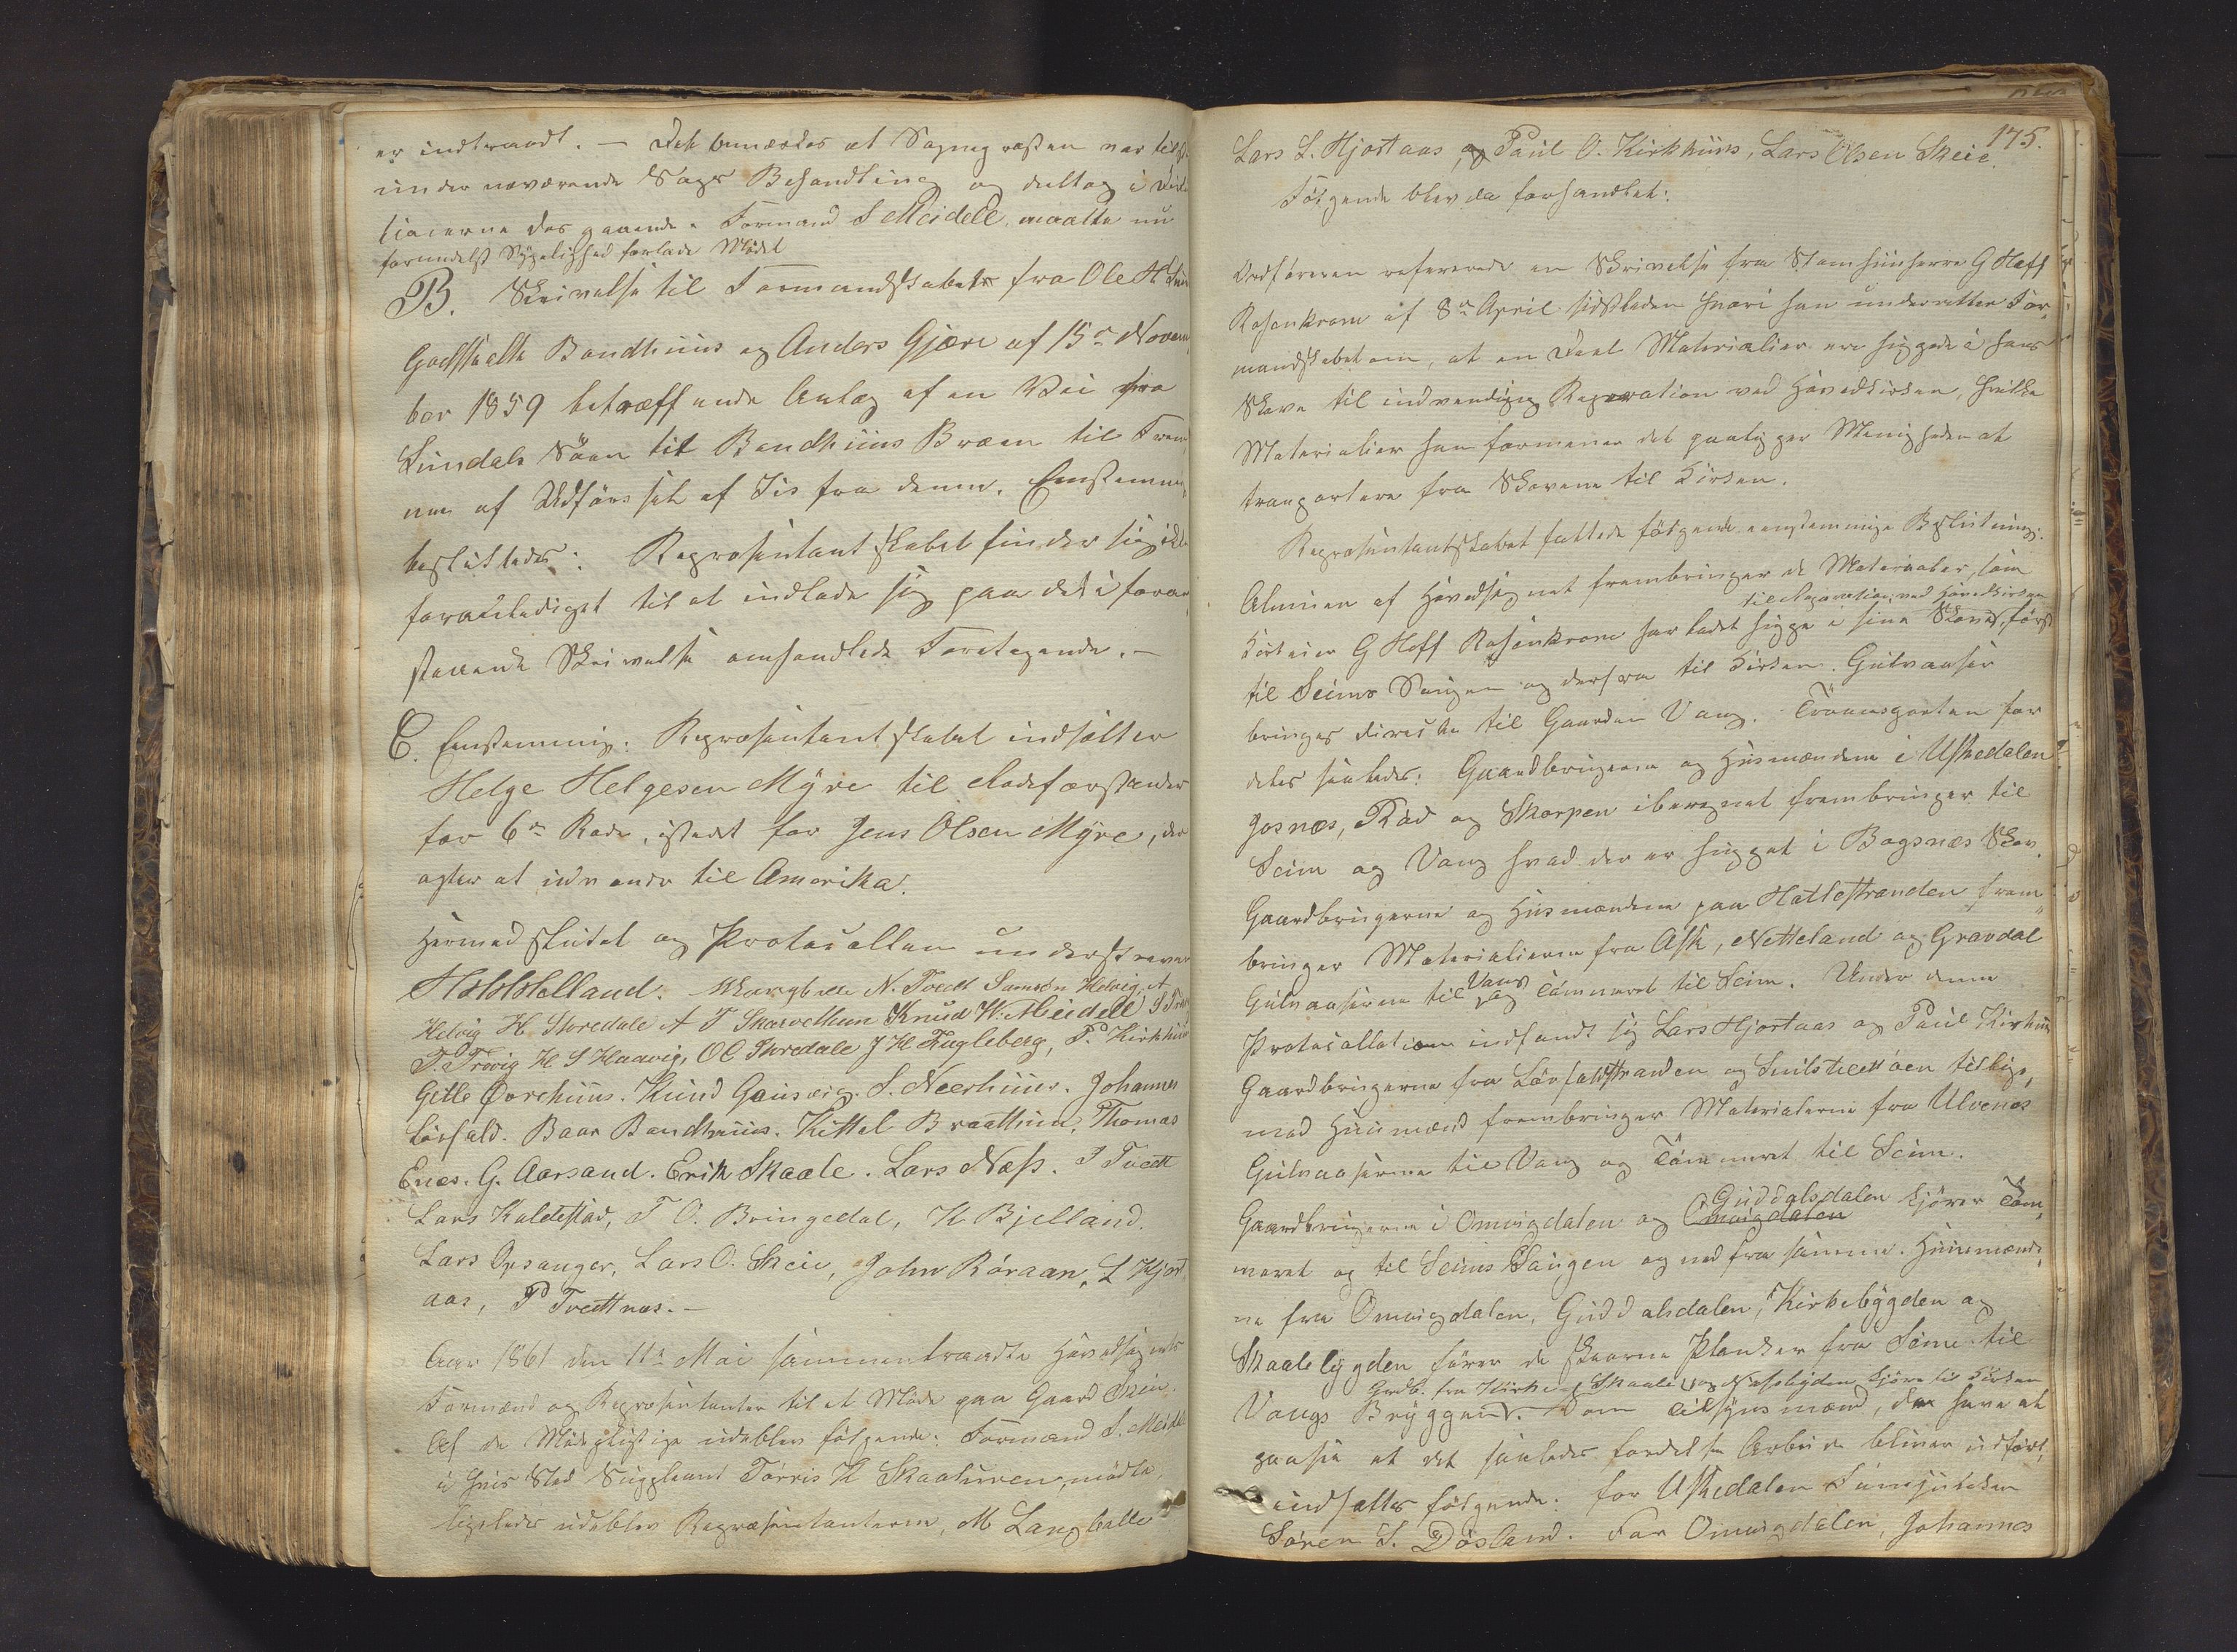 er indtraadt. — Det bemærkes at Sogneprosten var tilst.
under nærværende Sags Behandling og deeltog i
desangaaende. Formand S Meidell maatte nu
formedelst Sygelighed forlade Mödet
B. Skrivelse til Formandskabet fra Ole H
Bondhuus og Anders Gjære af 15de Novem,
ber 1859 betræffende Anlæg af en Vei fra
Sundals Söen til Bondhuus Bræen til Frem,
me af Udförsel af Iis fra denne. Eenstemmig
besluttedes: Repræsentantskabet finder sig ikke
foranlediget til at indlade sig paa det i foran,
staaende Skrivelse omhandlede Foretagende. —
C. Eenstemmig: Repræsentantskabet indsætter
Helge Helgesen Myre til Rodeforstander
for 6te Rode, istedet for Jens Olsen Myre, der
agter at udvandre til Amerika.
Hermed sluttet og Protocollen underskreven
Helland. M Langballe N. Tvedt Samson Helvig, A
Helvig H. Storedale A T Skarvethun Knud W. Meidell
T. Trovig H S Haavig, O O Skredale J H Fugleberg, P. Kirkhuus
GitleÖvrehuus. Knud Gausvig. S. Neerhuus. Johannes
Lörfald. Baar Bondhuus. Kittel Braathun, Thomas
Enes. G. Aarsand. Erik Skaale. Lars Næss. I Tvedt
Lars Kaldestad, T O. Bringedal, K Bjelland.
Lars Opsanger, Lars O. Skeie, John Röraan, L Hjort,
aas, P Tveitnæs. —
Aar 1861 den 11te Mai sammentraadte Hovedsognets
Formænd og Repræsentanter til et Möde paa Gaard Skeie.
Af de Mödepligtige udeblev fölgende: Formand S. Meidell
i hvis Sted Suppleant Törris K Skaaluren, mödte,
ligeledes udeblev Repræsentanterne, M Langballe
175.
Lars L. Hjortaas, og Paul O. Kirkhuus, Lars Olsen Skeie.
Fölgende blev da forhandlet:
Ordföreren refererede en Skrivelse fra Stamhuusherre G Hoff
Rosenkrone af 8de April sidstleden hvori han underretter For,
mandskabet om, at en Deel Materialier ere huggede i hans
Skove til indvendig Reparation ved Hovedkirken, hvilke
Materialier han formener det paaligger Menigheden at
transportere fra Skovene til Kirken.
Repræsentantskabet fattede fölgende eenstemmige Beslutning:
Almuen af Hovedsognet frembringer de Materialer, som
til Reparation ved Hovedkirken
Kirkeeier G Hoff Rosenkrone har ladet hugge i sine Skove, först
til Seims Saugen og derfra til Kirken. Gulvaaser
bringes directe til Gaarden Vang. Transporten for
deles saaledes: Gaardbrugerne og Husmændene i Uskedalen
Josnæs, Röd og Skorpen iberegnet frembringer til
Seim og Vang hvad der er hugget i Bogsnæs Skov.
Gaardbrugerne og Husmændene paa Hatlestranden frem
bringer Materialierne fra Ask, Netteland og Gravdal
Gulvaaserne til Vang og Tömmeret til Seim. Under denne
Protocollation indfandt sig Lars Hjortaas og Paul Kirkhuus
Gaardbrugerne fra Lörfaldstranden og Snilstveitöen tillige,
med Huusmænd frembringer Materialerne fra Ulvenæs
Gulvaaserne til Vang og Tömmeret til Seim.
Guddalsdalen
Gaardbrugerne i Omvigdalen og Omvigdalen kjörer Töm,
meret op til Seims Saugen og ned fra samme. Huusmænde,
ne fra Omvigdalen, Guddalsdalen, Kirkebygden og
Skaalebygden förer de skaarne Planker fra Seim til
Grdb. fra Kirke og Skaale og Næsbygden kjöre til Kirken
Vangs Bryggen. Som Tilsynsmænd, der have at
paasee at det saaledes fordelte Arbeide bliver udfört,
indsættes fölgende: for Uskedalen Samsonsen
Sören S. Dösland. For Omvigdalen, Johannes